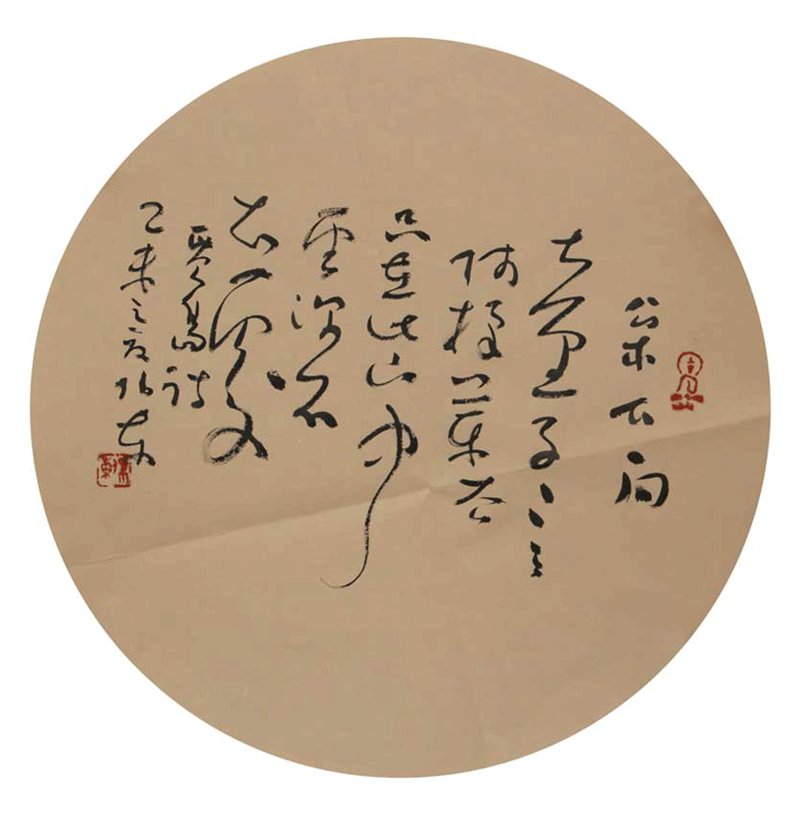 松下问
童子言
师採药去
只在此山中
雲深不
知处
賈島诗
乙未之夏